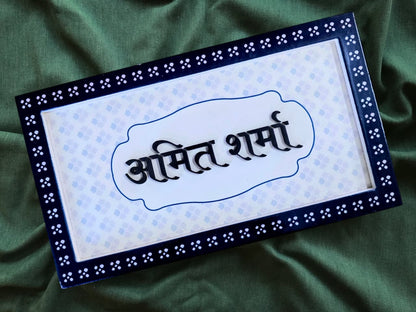 अमित शर्मा